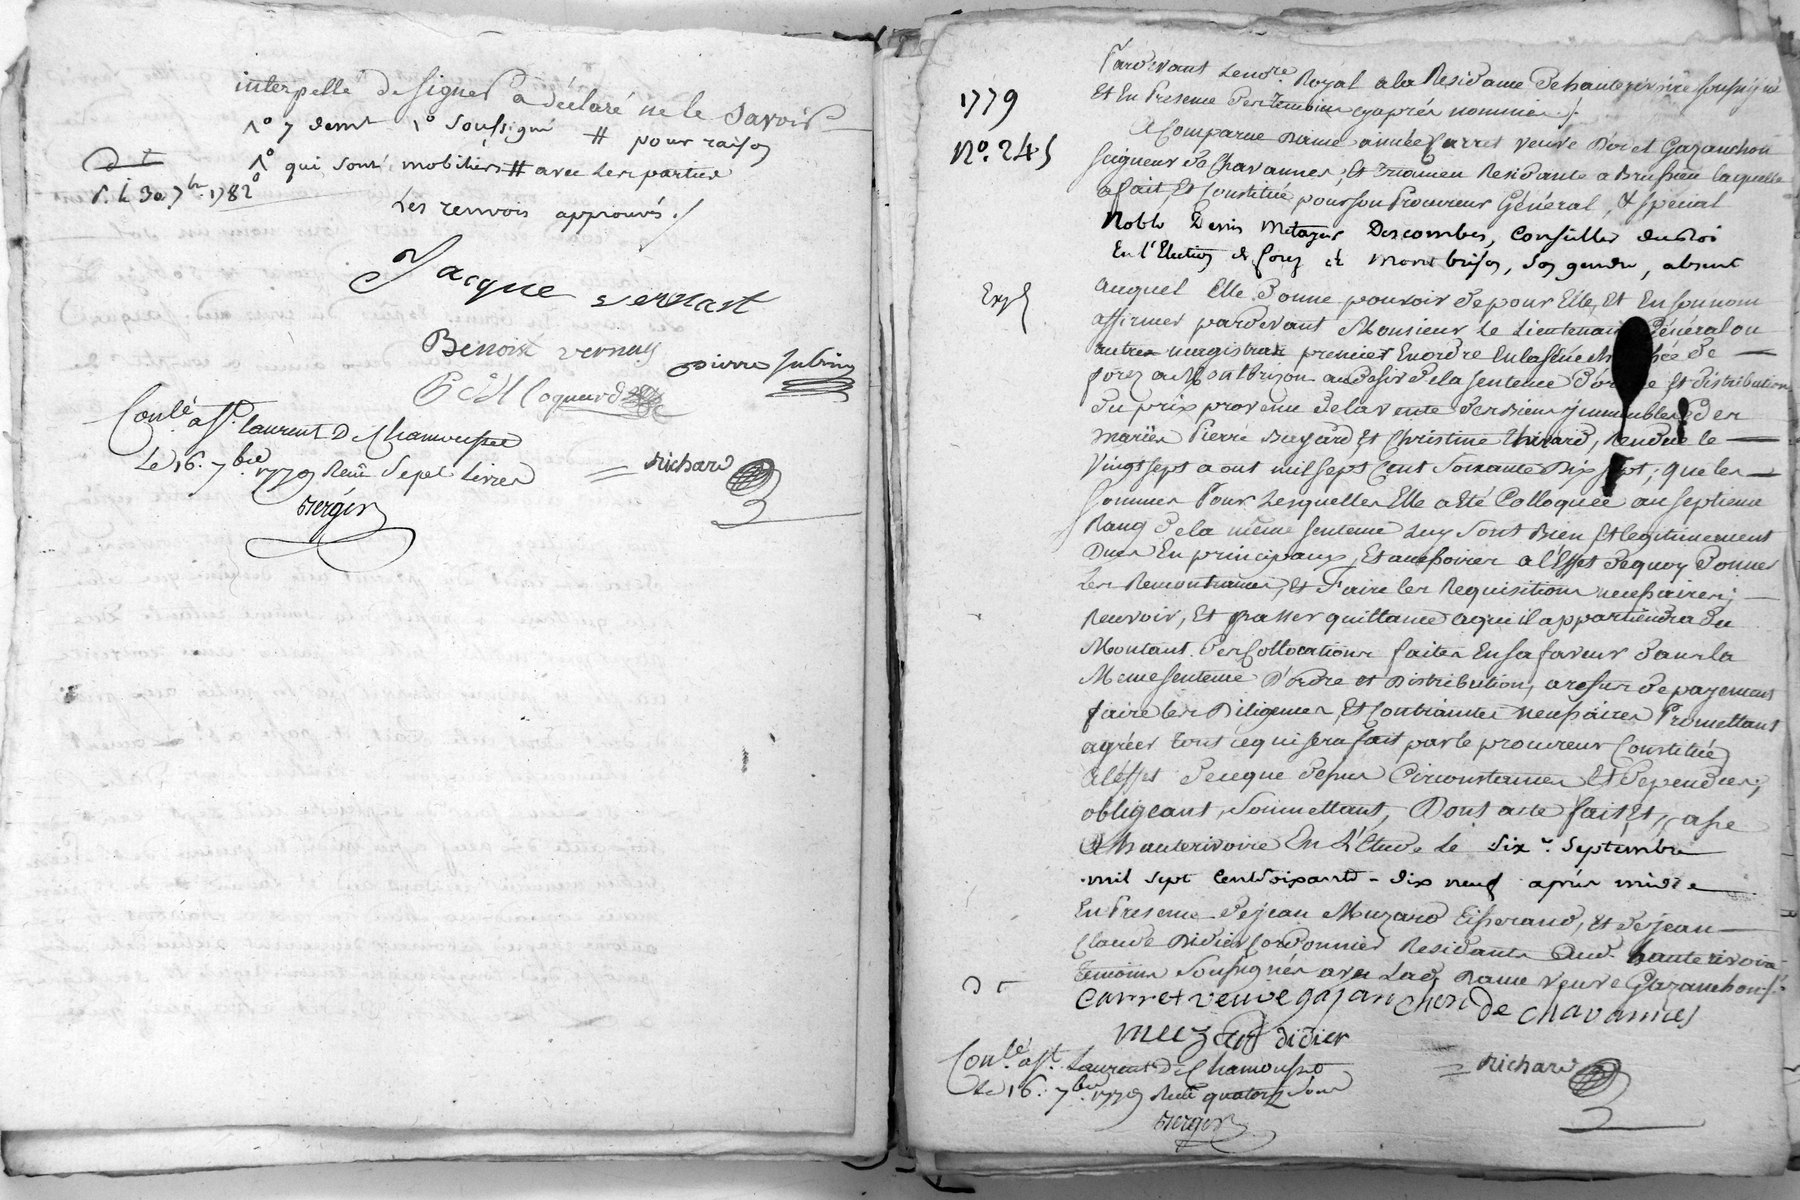 interpellé de signer a déclaré ne le savoir
1º 7 derniers 1º soussigné # pour raison
1º qui sont mobiliers # avec les parties
dt
p. le 30. 7bre 1782
Les renvois approuvés ./
Jacque vernast
Benoist vernay
pierre Jubin
Coquard
Conlé. à St. Laurent De Chamousset
Le 16. 7bre 1779 Reçu Sept Livres
= Richard
Verger
1779
No. 245
Pardevant Le no.re Royal a la Residance de hauterivoire soussigné
Et En Presence des Temoins cyaprés nommés ./.
A Comparue Dame aimée Carret veuve Noel Gazanchon
seigneur de Chavannes, Et Residante a Brussieu laquelle
a fait Et Constitué pour son Procureur Général, & spécial
Noble Denis Metayer Descombes, Conseiller du Roi
En l'Election de forez à Montbrison, son gendre, absent
Exp
auquel Elle Donne pouvoir de pour Elle, Et En son nom
affirmer pardevant Monsieur le Lieutenant Général ou
autres magistrats premier En ordre En la sénéchaussée de
forez a Montbrizon au Desir de la sentence d'ordre Et distribution
Du prix provenu de la vente des Biens immeubles des
mariés Pierre Et Christine Rendue le
vingt sept aout mil sept Cent Soixante Dix sept; que les
sommes Pour Lesquelles Elle a été Colloquée au septieme
Rang de la même sentence Luy sont Bien Et legitimement
Dues En principaux, Et accessoires a l'Effet de quoy Donner
les Remontrances, Et Faire les Requisitions necessaires;
Recevoir, Et passer quittance a qui il appartiendra du
Montant des Collocations faites En sa faveur dans la
Meme sentence D'ordre et Distribution, a refus de payement
faire les Diligences, Et Contraintes necessaires Promettant
agréer tout ce qui sera fait par le procureur Constitué
a l'effet de ce que dessus Circonstances Et dependances;
obligeant, Soumettant, Dont acte fait Et passé
A hauterivoire En L'Etude Le six septembre
mil sept cent soixante-dix neuf après midi
En Presence de jean Muzard tisserand, Et de jean
Claude Didier Cordonnier Residants Aud. hauterivoire
temoins soussignés avec Lad. Dame veuve Gazanchon ./.
dt
Carret veuve gazanchon de chavannes
muzard didier
Conlé. à St. Laurent De Chamousset
Le 16. 7bre 1779 Reçu quatorze sous
= Richard
Verger